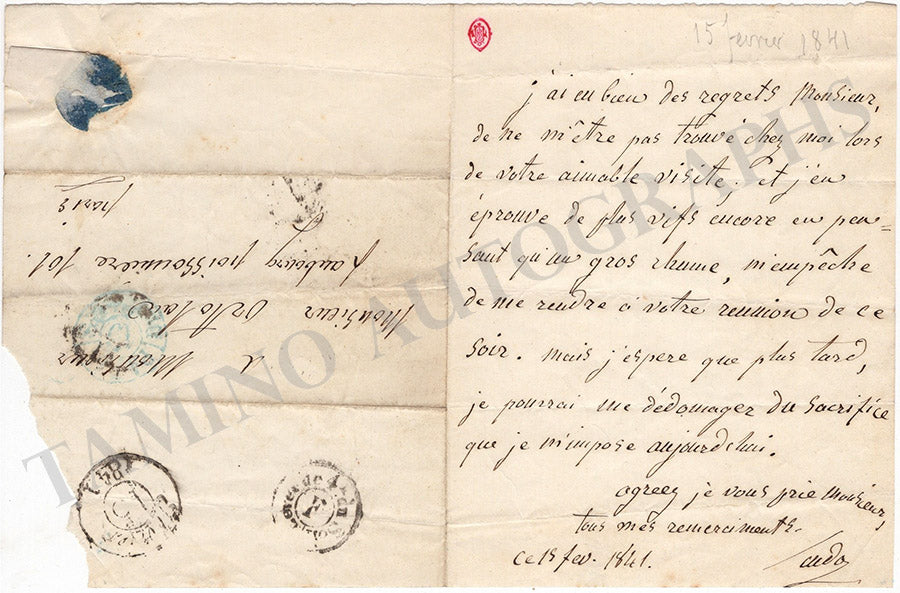 15 février 1841
j'ai eu bien des regrets Monsieur,
de ne m'être pas trouvé chez moi lors
de votre aimable visite; et j'en
éprouve de plus vifs encore en pen-
sant qu'un gros rhume, m'empêche
de me rendre à votre reunion de ce
soir. mais j'espere que plus tard,
je pourrai me dédomager du sacrifice
que je m'impose aujourdhui.
agreez je vous prie Monsieur,
tous mes remerciments.
ce 15 fev. 1841.
à Monsieur
Monsieur
faubourg poissonnière 101.
paris
1841
TAMINO AUTOGRAPHS